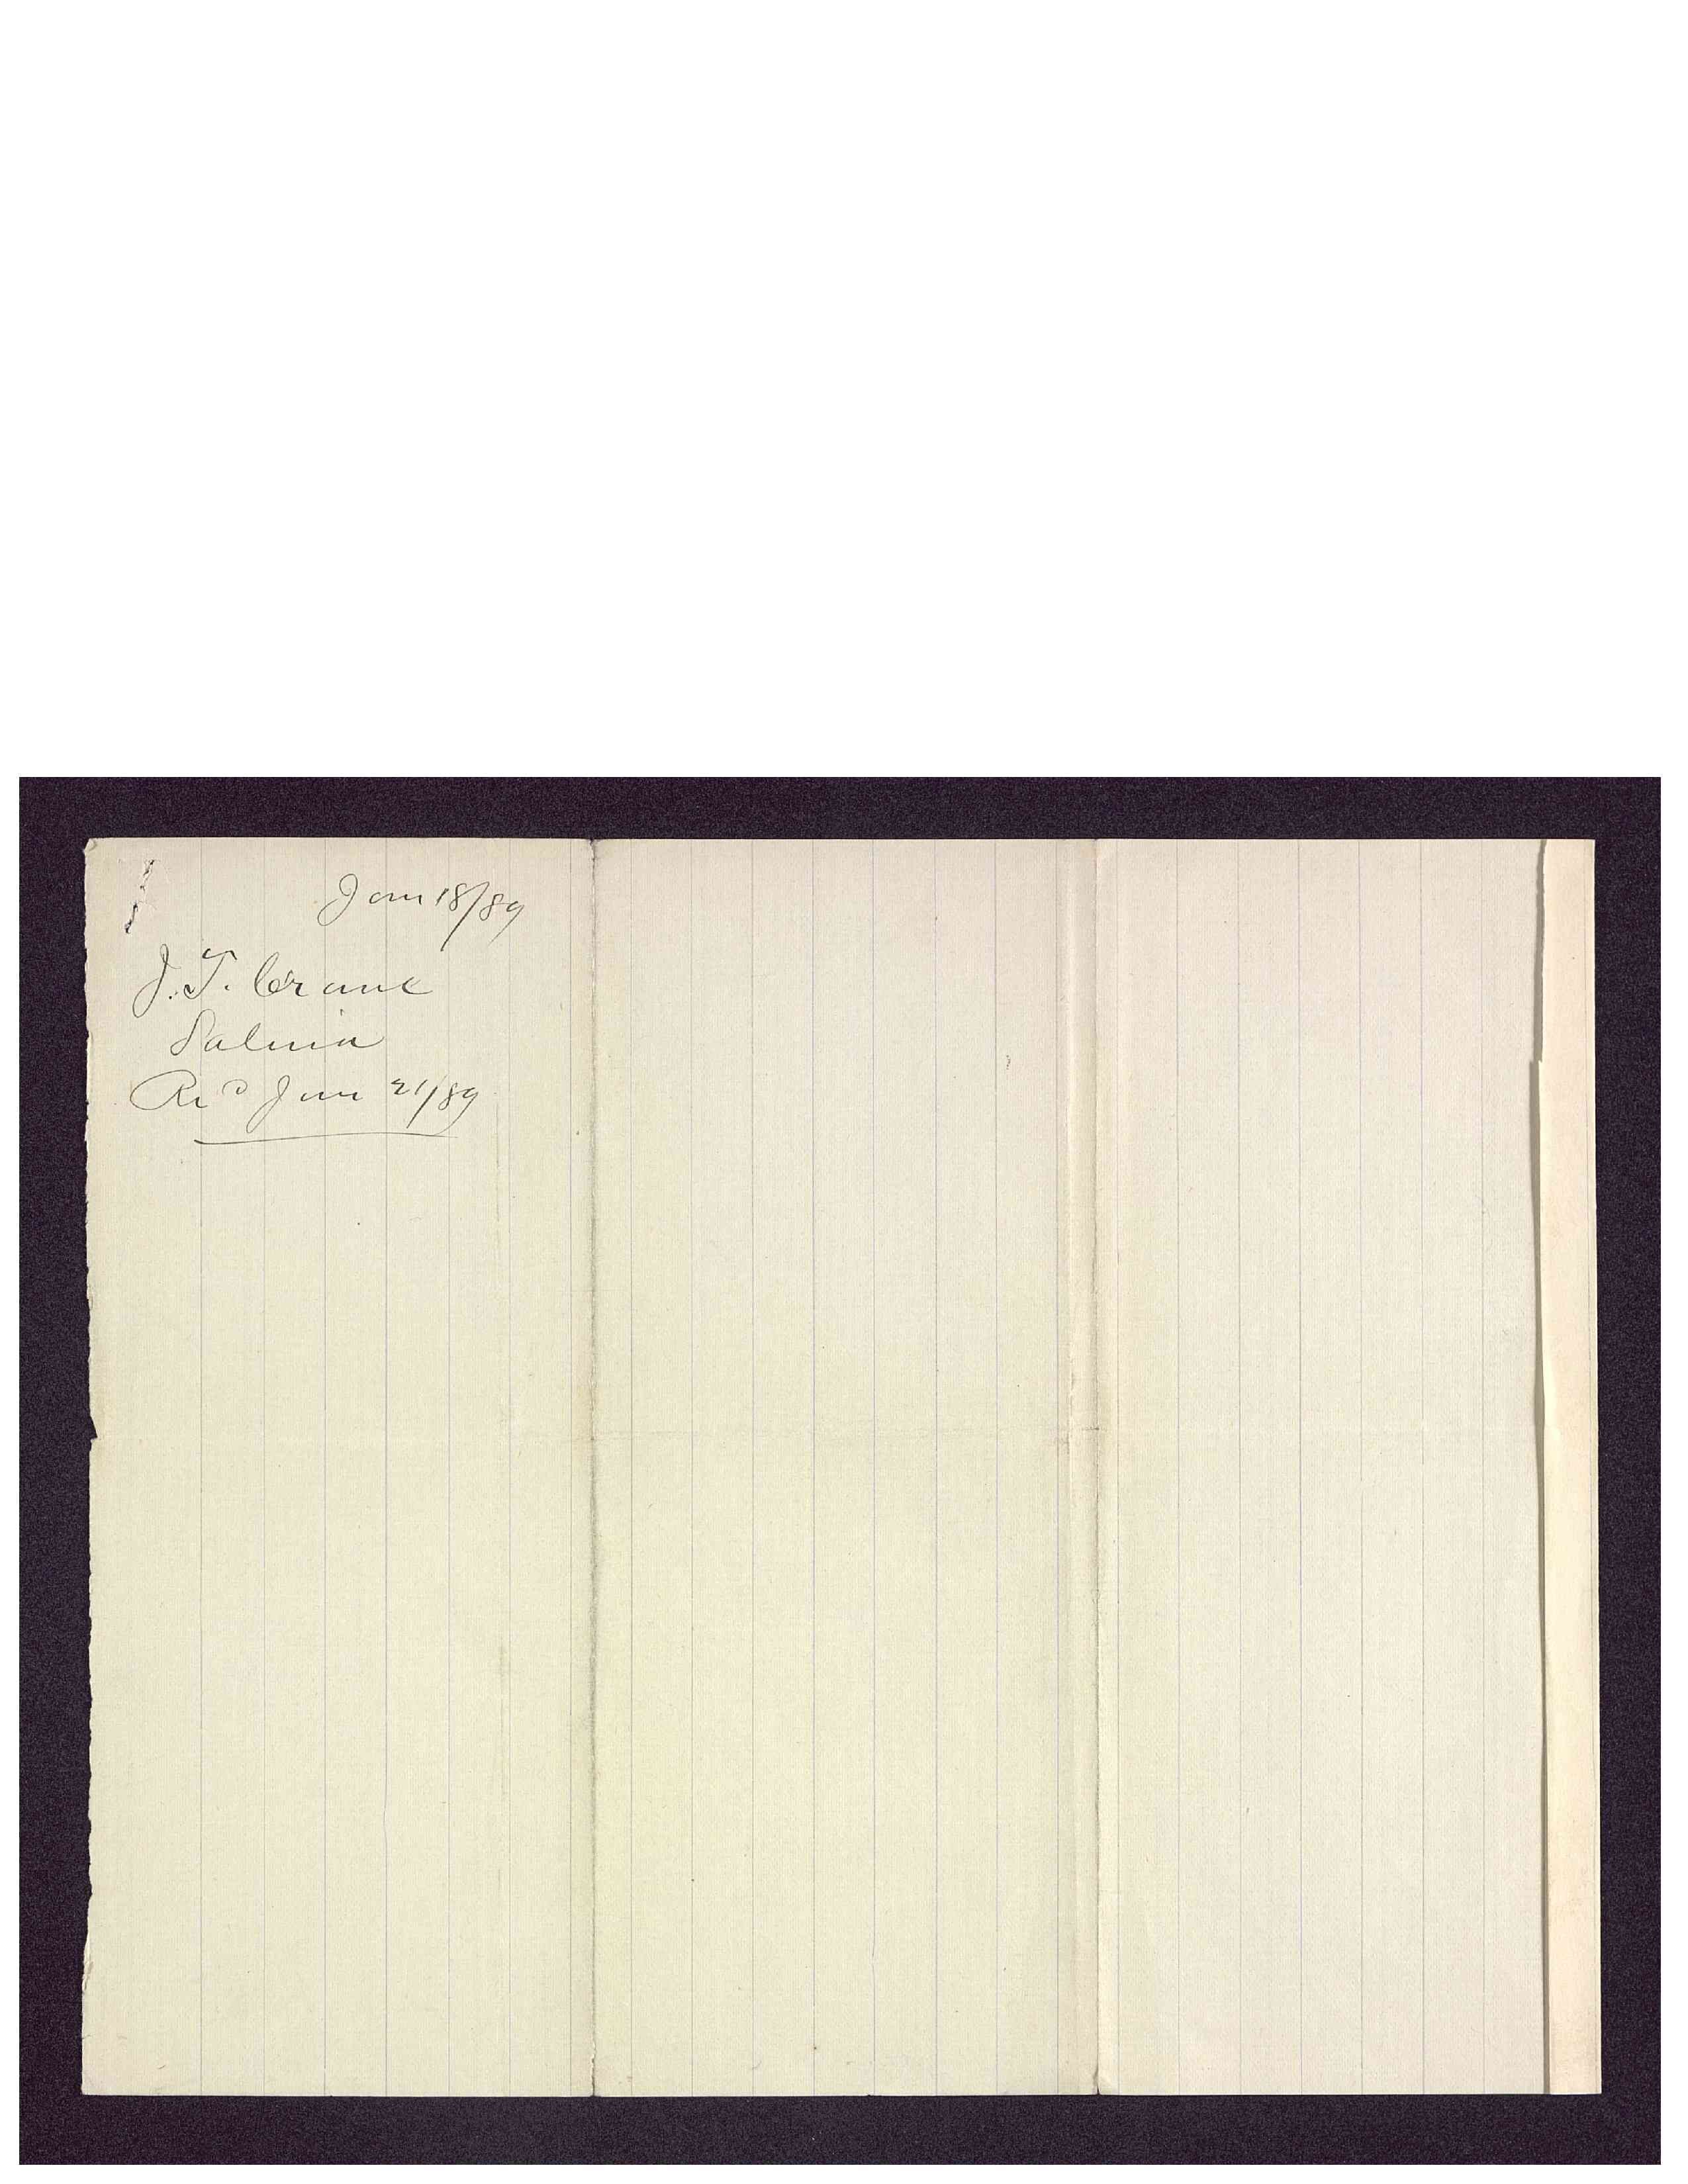 Jan 18/89
J. T. Crane
Salina
Rcd Jan 21/89